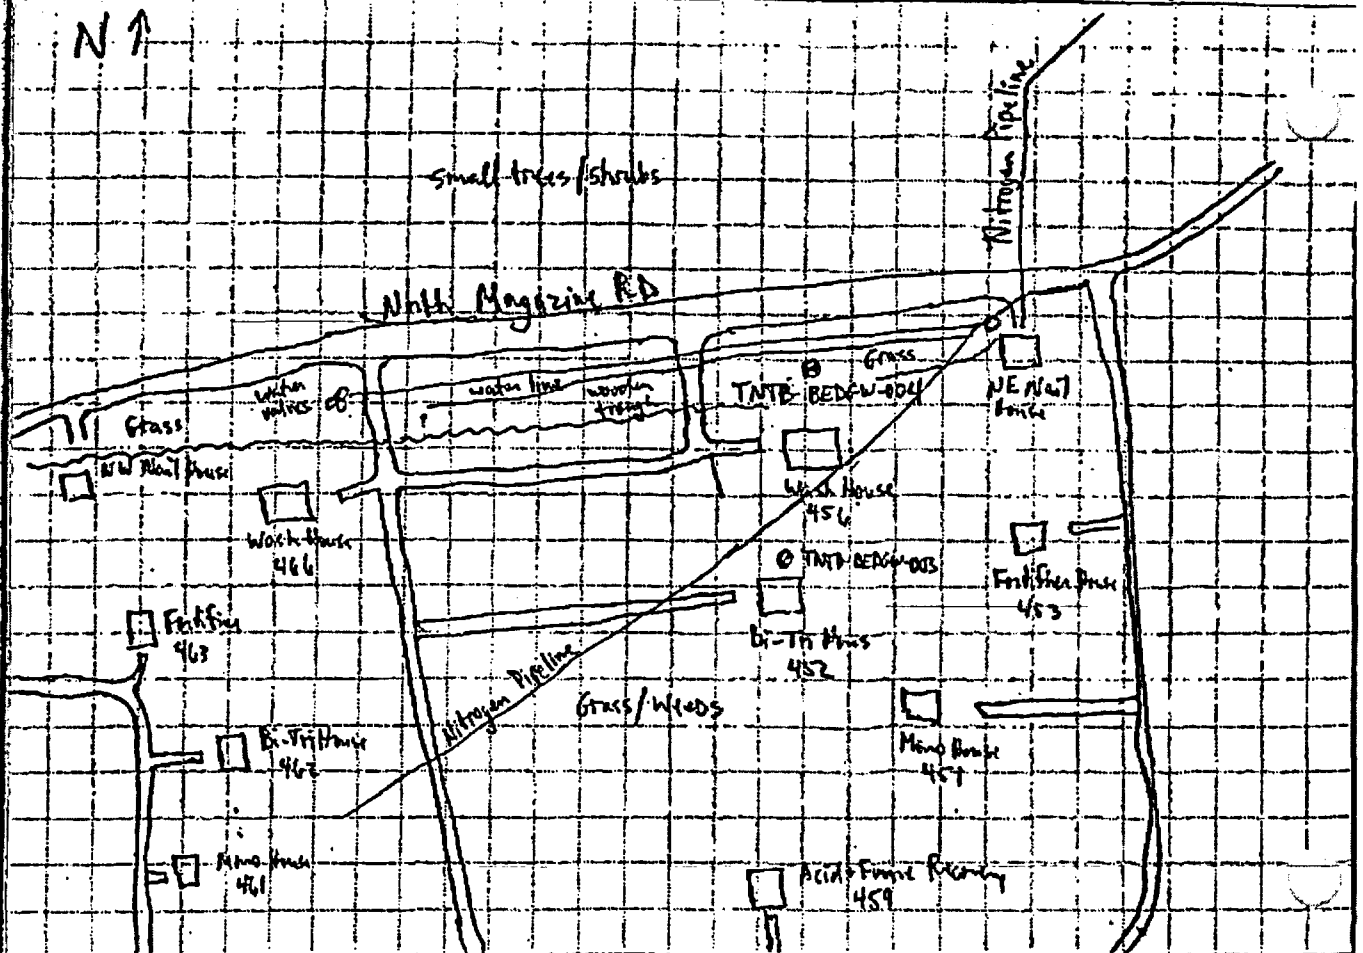 N
Nitrogen Pipeline
Small trees/Shrubs
North Magazine RD
water
valves
water line
wooden
trough
Grass
TNTB-BEDGW-004
NE Nail
House
Grass
?
NW Nail House
Wash House
456
Wash House
466
TNTB-BEDGW-003
Fortifier House
453
Fortifier
463
Bi-Tri House
452
Nitrogen Pipeline
Grass/Weeds
Bi-Tri House
462
Mono House
451
Mono House
461
Acid + Fume Recovery
459